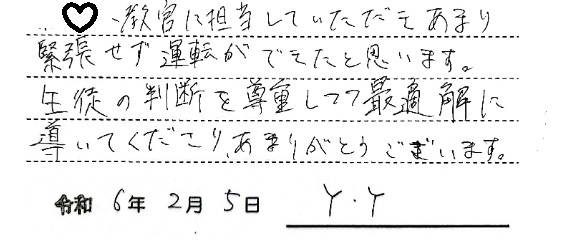 ♡教官に担当していただきあまり
緊張せず運転ができたと思います。
生徒の判断を尊重しつつ最適解に
導いてくださり、ありがとうございます。
令和 6年 2月 5日 Y.Y